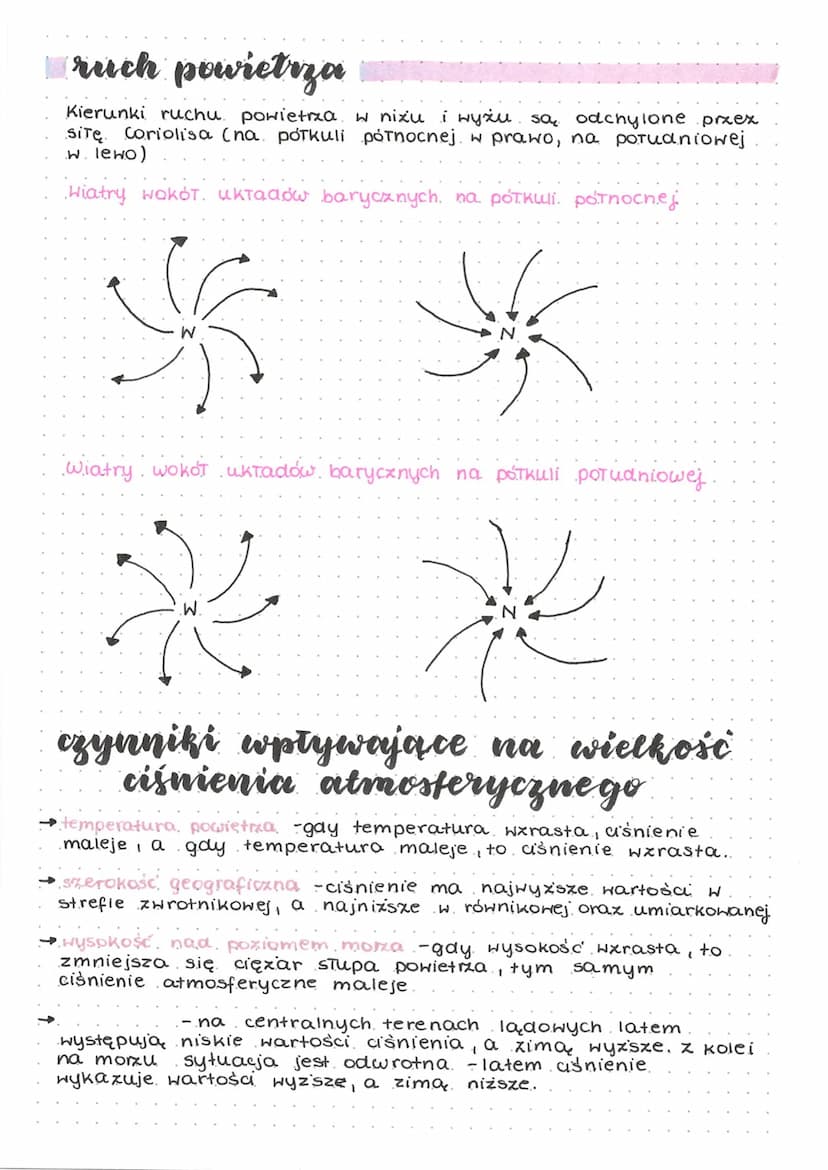 ruch powietrza
Kierunki ruchu powietrza w niżu i wyżu są odchylone przez
siłę Coriolisa (na półkuli północnej w prawo, na południowej
w lewo)
Wiatry wokół układów barycznych na półkuli północnej
W N
Wiatry wokół układów barycznych na półkuli południowej
W N
czynniki wpływające na wielkość
ciśnienia atmosferycznego
→ temperatura powietrza - gdy temperatura wzrasta, ciśnienie
maleje, a gdy temperatura maleje, to ciśnienie wzrasta.
→ szerokość geograficzna - ciśnienie ma najwyższe wartości w
strefie zwrotnikowej, a najniższe w równikowej oraz umiarkowanej
→ wysokość nad poziomem morza - gdy wysokość wzrasta, to
zmniejsza się ciężar słupa powietrza, tym samym
ciśnienie atmosferyczne maleje
→ - na centralnych terenach lądowych latem
występują niskie wartości ciśnienia, a zimą wyższe. Z kolei
na morzu sytuacja jest odwrotna - latem ciśnienie
wykazuje wartości wyższe, a zimą niższe.